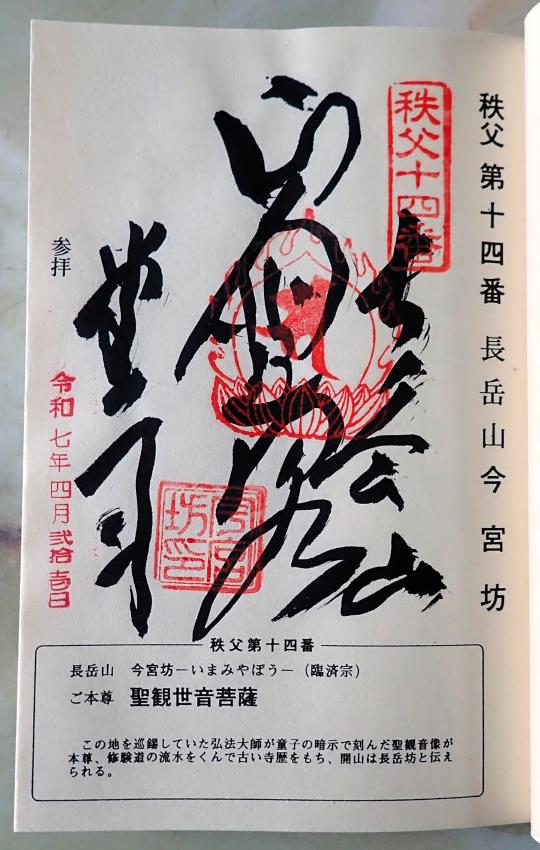 秩父 第十四番 長岳山今宮坊
秩父十四番
山
今宮
坊印
参拝
令和七年四月弐拾壱日
秩父第十四番
長岳山 今宮坊―いまみやぼう―（臨済宗）
ご本尊 聖観世音菩薩
この地を巡錫していた弘法大師が童子の暗示で刻んだ聖観音像が
本尊、修験道の流水をくんで古い寺歴をもち、開山は長岳坊と伝え
られる。